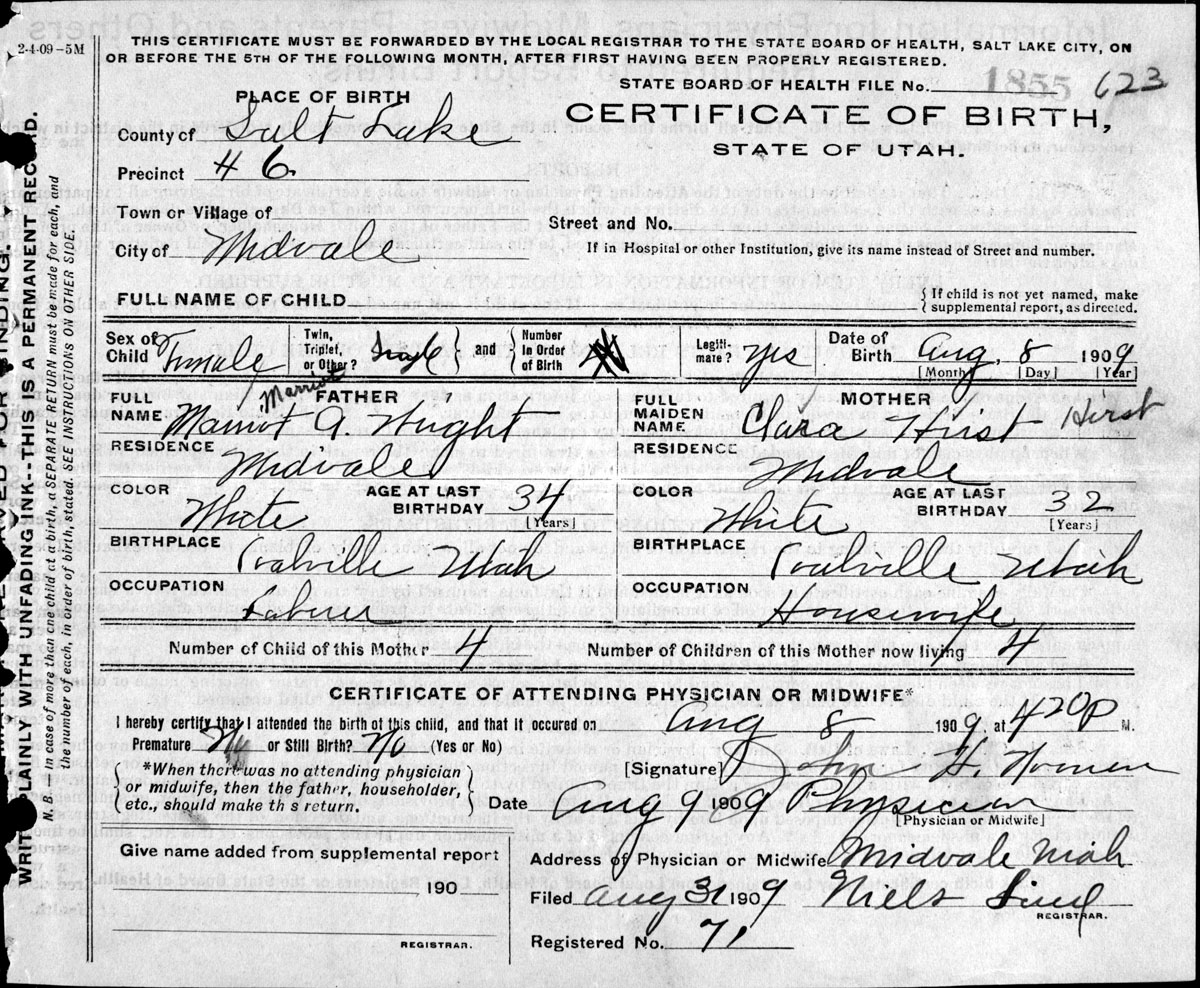 2-4-09-5M
THIS CERTIFICATE MUST BE FORWARDED BY THE LOCAL REGISTRAR TO THE STATE BOARD OF HEALTH, SALT LAKE CITY, ON
OR BEFORE THE 5TH OF THE FOLLOWING MONTH, AFTER FIRST HAVING BEEN PROPERLY REGISTERED.
STATE BOARD OF HEALTH FILE No. 1855 623
PLACE OF BIRTH
CERTIFICATE OF BIRTH,
STATE OF UTAH.
County of Salt Lake
Precinct # 6
Town or Village of
Street and No.
City of Midvale
If in Hospital or other Institution, give its name instead of Street and number.
FULL NAME OF CHILD
If child is not yet named, make
supplemental report, as directed.
Sex of Child Female
Twin, Triplet, or Other? and Number In Order of Birth
Legiti-mate? Yes
Date of Birth Aug. 8 1909
[Month] [Day] [Year]
FATHER
FULL NAME A.
RESIDENCE Midvale
COLOR White
AGE AT LAST BIRTHDAY 34
[Years]
BIRTHPLACE Coalville Utah
OCCUPATION Laborer
MOTHER
FULL MAIDEN NAME Clara Hurst Hurst
RESIDENCE Midvale
COLOR White
AGE AT LAST BIRTHDAY 32
[Years]
BIRTHPLACE Coalville Utah
OCCUPATION Housewife
Number of Child of this Mother 4
Number of Children of this Mother now living 4
CERTIFICATE OF ATTENDING PHYSICIAN OR MIDWIFE*
I hereby certify that I attended the birth of this child, and that it occured on Aug 8 1909, at 420 P M.
Premature No or Still Birth? No (Yes or No)
*When there was no attending physician
or midwife, then the father, householder,
etc., should make this return.
[Signature] John
Date Aug 9 1909 Physician
[Physician or Midwife]
Give name added from supplemental report
190
REGISTRAR.
Address of Physician or Midwife Midvale Utah
Filed Aug 31 1909 Niels Lind
REGISTRAR.
Registered No. 71
WRITE PLAINLY WITH UNFADING INK—THIS IS A PERMANENT RECORD.
N. B. In case of more than one child at a birth, a SEPARATE RETURN must be made for each, and
the number of each, in order of birth, stated. SEE INSTRUCTIONS ON OTHER SIDE.